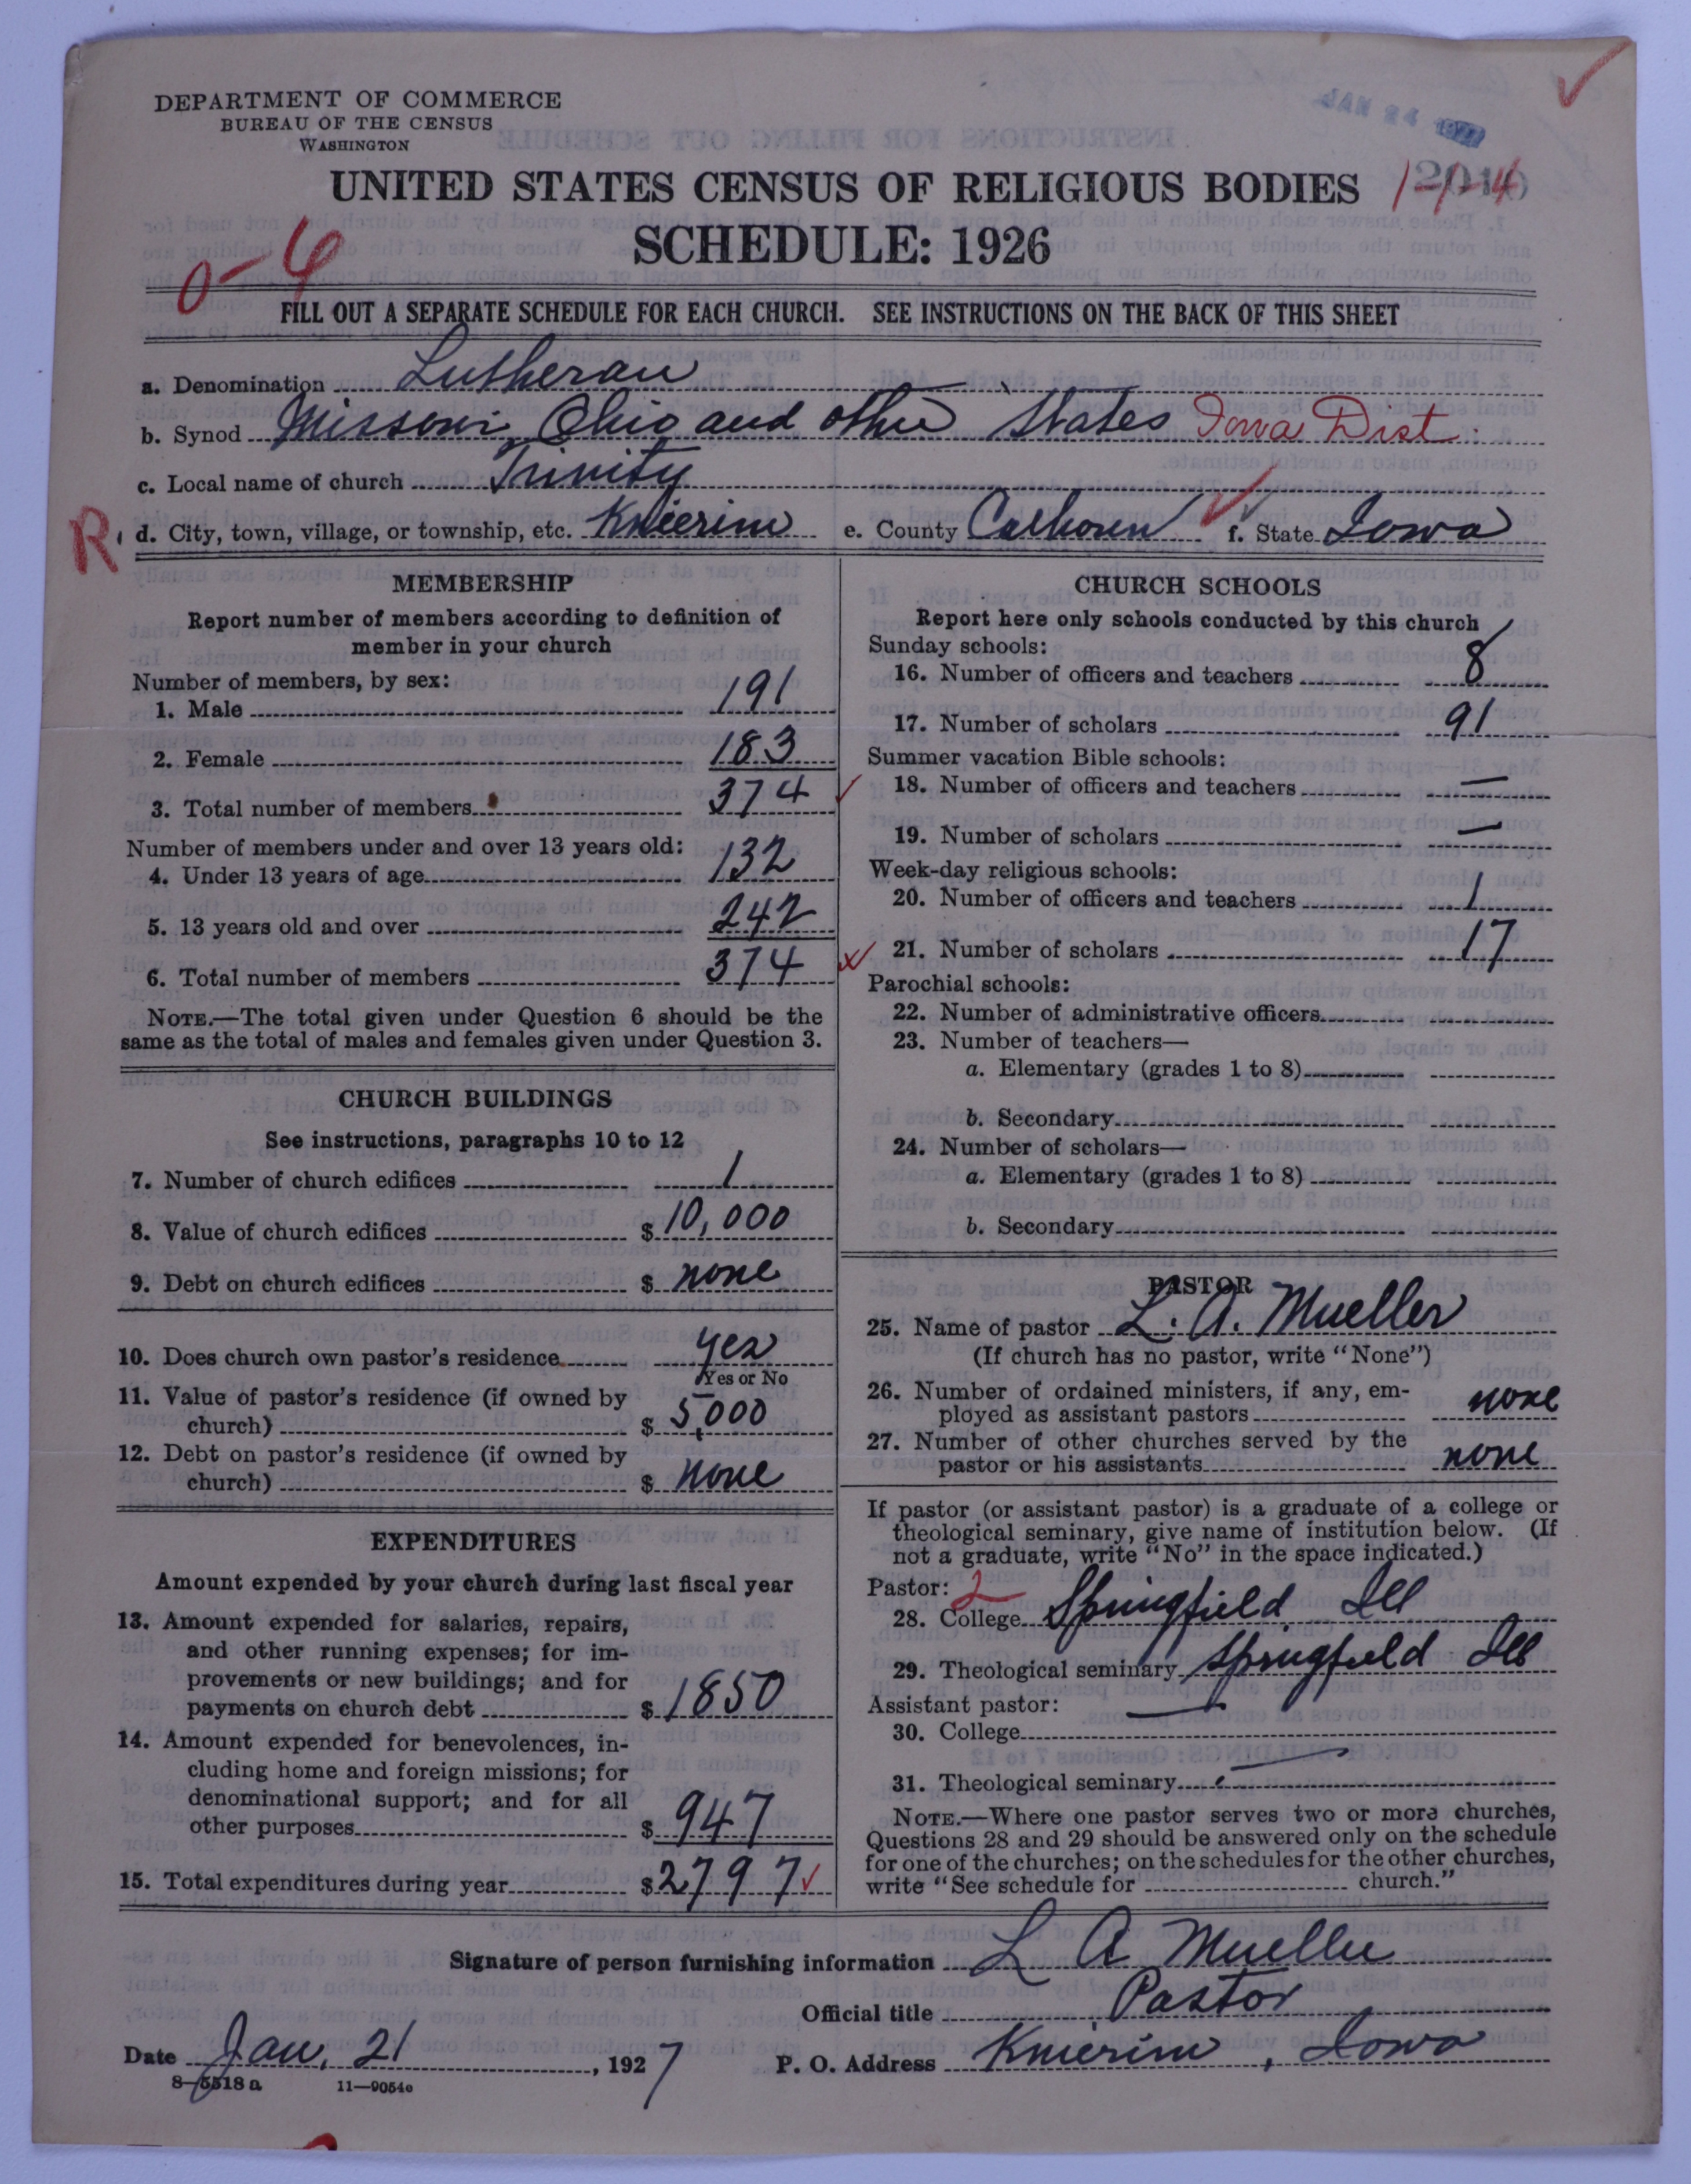 DEPARTMENT OF COMMERCE
BUREAU OF THE CENSUS
WASHINGTON
JAN 24
UNITED STATES CENSUS OF RELIGIOUS BODIES
SCHEDULE: 1926
0-4
FILL OUT A SEPARATE SCHEDULE FOR EACH CHURCH. SEE INSTRUCTIONS ON THE BACK OF THIS SHEET
a. Denomination Lutheran
b. Synod Missouri, Ohio and other States Iowa Dist.
c. Local name of church Trinity
R. d. City, town, village, or township, etc. Knierim e. County Calhoun f. State Iowa
MEMBERSHIP
Report number of members according to definition of
member in your church
Number of members, by sex:
1. Male 191
2. Female 183
3. Total number of members 374
Number of members under and over 13 years old:
4. Under 13 years of age 132
5. 13 years old and over 242
6. Total number of members 374
NOTE.—The total given under Question 6 should be the
same as the total of males and females given under Question 3.
CHURCH BUILDINGS
See instructions, paragraphs 10 to 12
7. Number of church edifices 1
8. Value of church edifices $ 10,000
9. Debt on church edifices $ none
10. Does church own pastor's residence yes
Yes or No
11. Value of pastor's residence (if owned by
church) $ 5,000
12. Debt on pastor's residence (if owned by
church) $ none
EXPENDITURES
Amount expended by your church during last fiscal year
13. Amount expended for salaries, repairs,
and other running expenses; for im-
provements or new buildings; and for
payments on church debt $ 1850
14. Amount expended for benevolences, in-
cluding home and foreign missions; for
denominational support; and for all
other purposes $ 947
15. Total expenditures during year $ 2797
CHURCH SCHOOLS
Report here only schools conducted by this church
Sunday schools:
16. Number of officers and teachers 8
17. Number of scholars 91
Summer vacation Bible schools:
18. Number of officers and teachers —
19. Number of scholars —
Week-day religious schools:
20. Number of officers and teachers 1
21. Number of scholars 17
Parochial schools:
22. Number of administrative officers
23. Number of teachers—
a. Elementary (grades 1 to 8)
b. Secondary
24. Number of scholars—
a. Elementary (grades 1 to 8)
b. Secondary
PASTOR
25. Name of pastor L. A. Mueller
(If church has no pastor, write "None")
26. Number of ordained ministers, if any, em-
ployed as assistant pastors none
27. Number of other churches served by the
pastor or his assistants none
If pastor (or assistant pastor) is a graduate of a college or
theological seminary, give name of institution below. (If
not a graduate, write "No" in the space indicated.)
Pastor: 2
28. College Springfield Ill
29. Theological seminary Springfield Ill
Assistant pastor: —
30. College
31. Theological seminary —
NOTE.—Where one pastor serves two or more churches,
Questions 28 and 29 should be answered only on the schedule
for one of the churches; on the schedules for the other churches,
write "See schedule for church."
Signature of person furnishing information L A Mueller
Official title Pastor
Date Jan, 21, 1927 P. O. Address Knierim, Iowa
8-5518 a 11-9054e